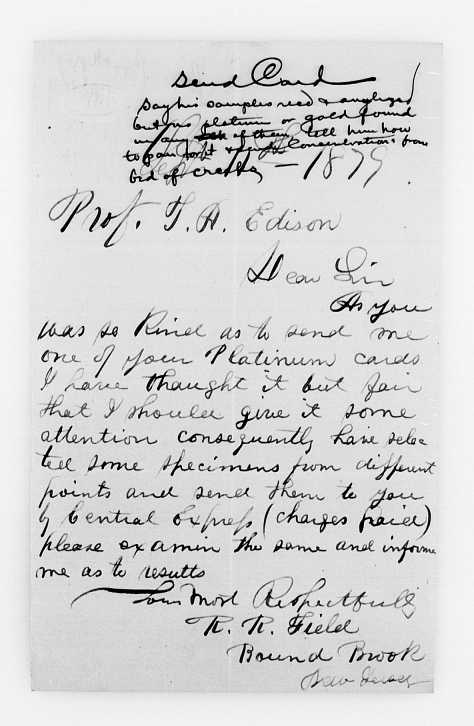 Send Card
Say his samples recd & analyzed
but no platinum or gold found
in any of them, tell him how
to pan & send Concentrations from
bed of creeks
1879
Prof. T. A. Edison
Dear Sir
As you
was so kind as to send me
one of your Platinum cards
I have thaught it but fair
that I should give it some
attention consequently have selec
ted some specimens from different
points and send them to you
by Central Express (charges paid)
please examin the same and informe
me as to results
Your Most Respectfully
R. R. Field
Bound Brook
New Jersey